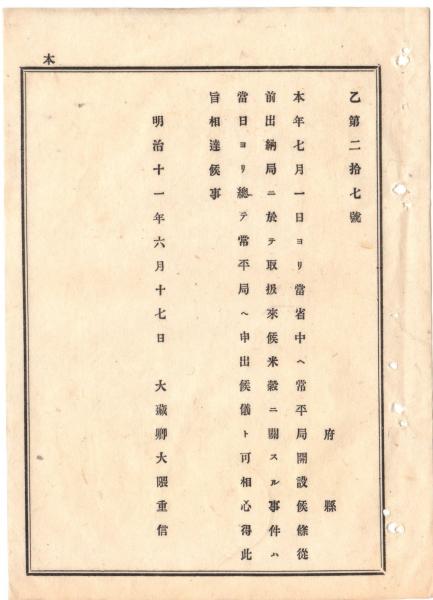 本
乙第二拾七號
府縣
本年七月一日ヨリ當省中ヘ常平局開設候條從
前出納局ニ於テ取扱來候米穀ニ關スル事件ハ
當日ヨリ總テ常平局ヘ申出候儀ト可相心得此
旨相達候事
明治十一年六月十七日 大藏卿大隈重信